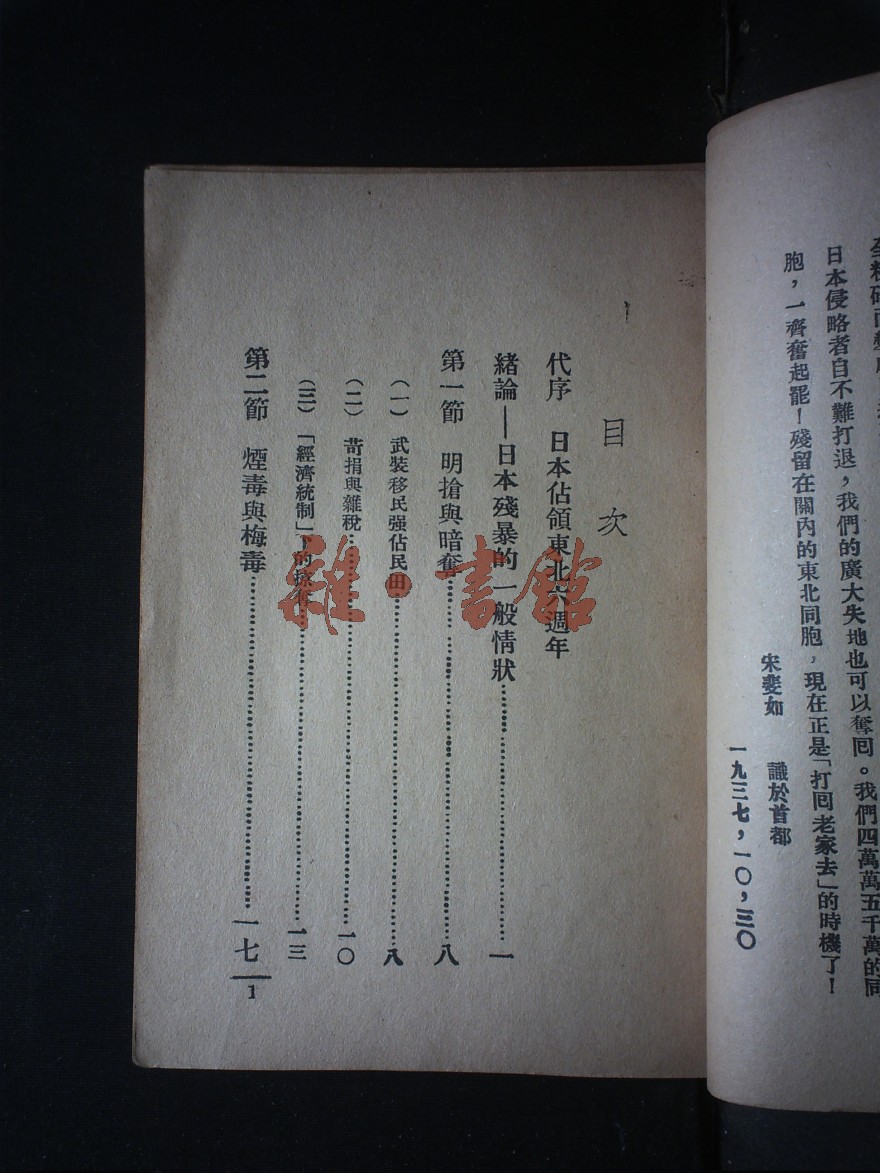 日本侵略者自不難打退，我們的廣大失地也可以奪囘。我們四萬萬五千萬的同
胞，一齊奮起罷！殘留在關內的東北同胞，現在正是「打囘老家去」的時機了！
宋斐如　識於首都
一九三七，一〇，三〇
目次
代序　日本佔領東北六週年
緒論—日本殘暴的一般情狀……一
第一節　明搶與暗奪……八
（一）武裝移民强佔民田……八
（二）苛捐與雜稅……一〇
（三）「經濟統制」下的掠奪……一三
第二節　煙毒與梅毒……一七
1
雜·書館